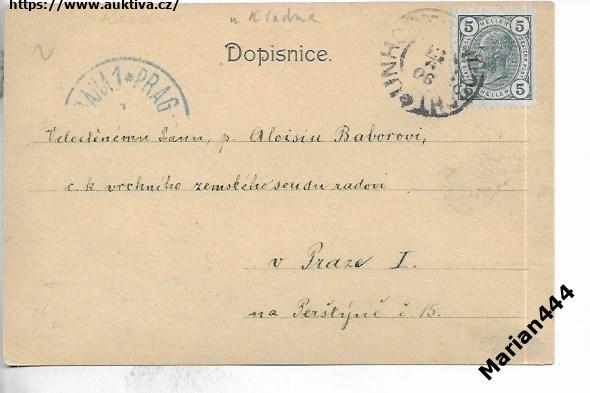 https://www.auktiva.cz/
u Kladna
Dopisnice.
5 5
HELLER HELLER
5 5
PRAHA 1 * PRAG
UNHOŠŤ * UNHOSCHT
06
Velectěnému Panu, p. Aloisiu Baborovi,
c. k. vrchního zemského soudu radovi
v Praze I.
na Perštýně č 15.
Marian444